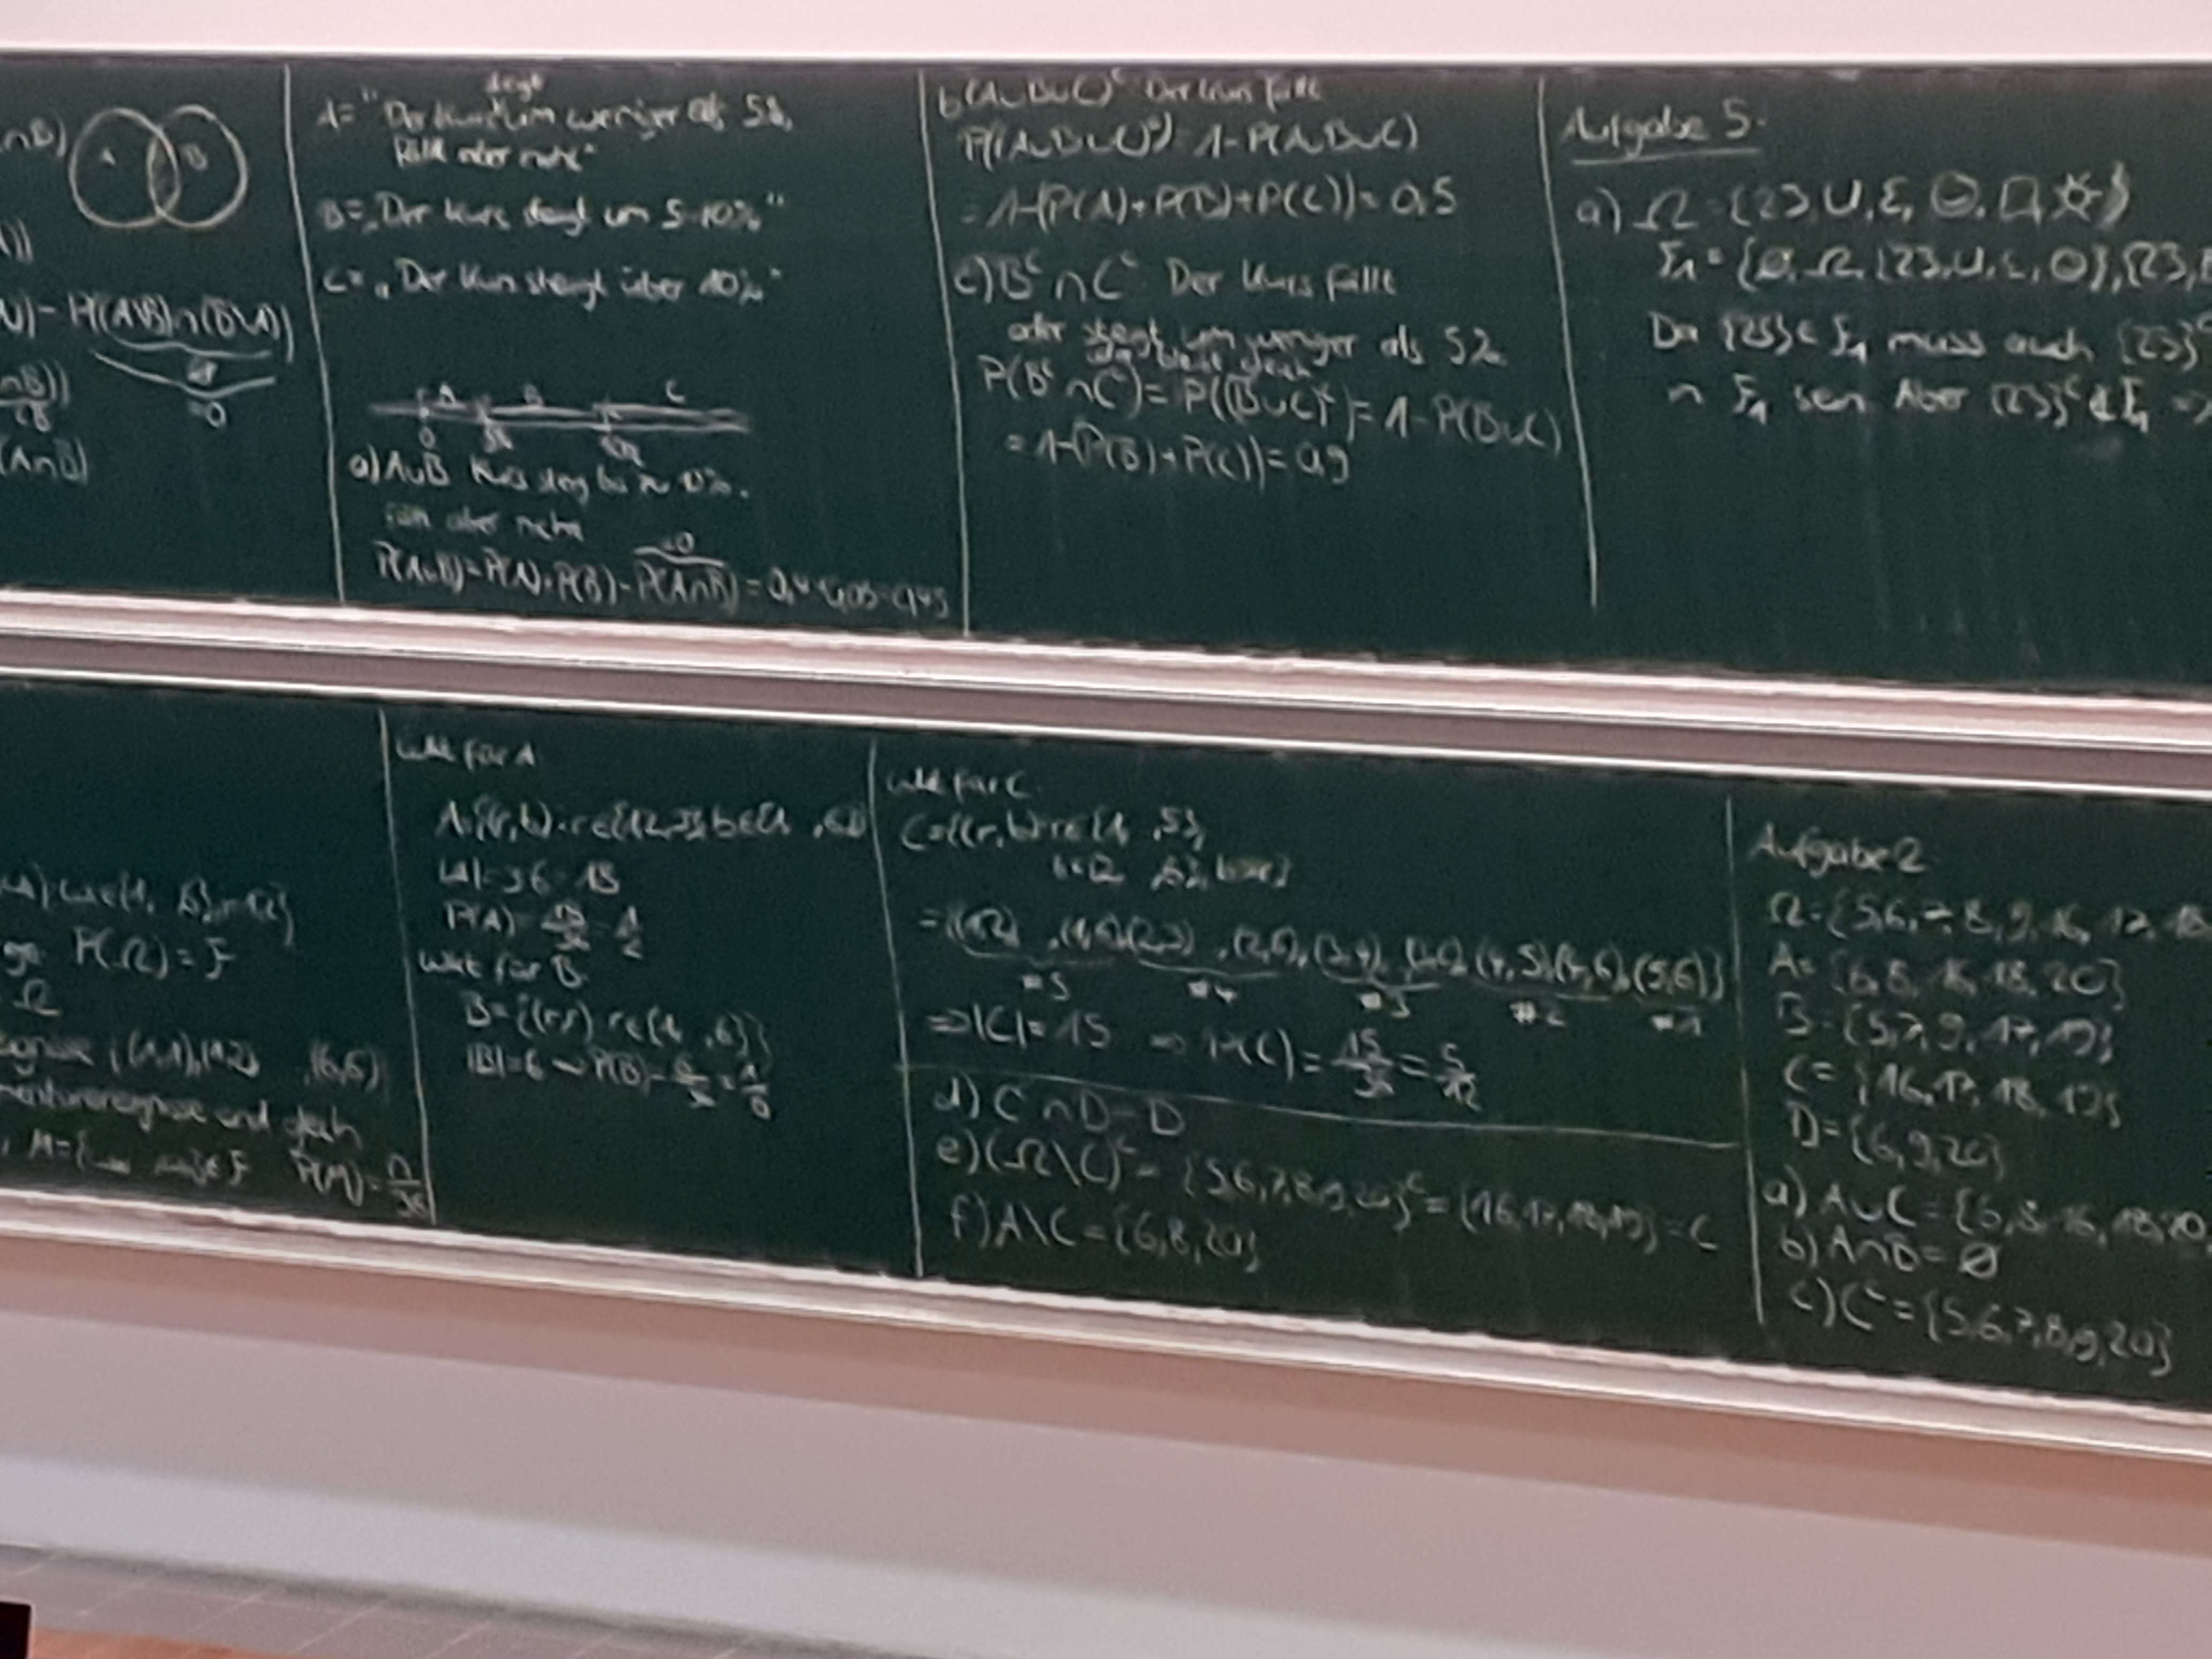 ∩B)
A B
A))
)− P((A\B)∩(B\A))
=0
(A∩B)
steigt
A= "Der Kurs um weniger als 5%,
fällt aber nicht"
B= „Der Kurs steigt um 5-10%"
C= „Der Kurs steigt über 10%"
A B C
0 5% 10%
a) A∪B Kurs steigt bis zu 10%,
fällt aber nicht
=0
P(A∪B)=P(A)+P(B)−P(A∩B)=0,4+0,05=0,45
b) (A∪B∪C)ᶜ Der Kurs fällt
P((A∪B∪C)ᶜ)=1−P(A∪B∪C)
=1−(P(A)+P(B)+P(C))=0,5
c) Bᶜ∩Cᶜ Der Kurs fällt
oder steigt um weniger als 5%
P(Bᶜ∩Cᶜ)=P((B∪C)ᶜ)=1−P(B∪C)
=1−(P(B)+P(C))=0,9
Aufgabe 5:
a) Ω={23,U,Σ,
F₁={∅,Ω,{23,U,
Da {23}∈F₁ muss auch {23}ᶜ
in F₁ sein Aber {23}ᶜ∉F₁ =>
P(Ω)=F
Ω
{(1,1),(1,2) ,(6,6)}
und gleich
P(M)=n/36
Wkt für A
A={(r,b):r∈{1,2,3},b∈{1, ,6}}
|A|=3·6=18
P(A)=18/36=1/2
Wkt für B
B={(r,r) r∈{1, ,6}}
|B|=6 P(B)=6/36=1/6
Wkt für C
C={(r,b) r∈{1, ,5},
b∈{2, ,6}, b>r}
={(1,2), ,(1,6),(2,3), ,(2,6),(3,4), ,(3,6),(4,5),(4,6),(5,6)}
#5 #4 #3 #2 #1
=>|C|=15 => P(C)=15/36=5/12
d) C∩D=D
e) (Ω\C)ᶜ={5,6,7,8,9,20}ᶜ={16,17,18,19}=C
f) A\C={6,8,20}
Aufgabe 2
Ω={5,6,7,8,9,16,17,18
A={6,8,16,18,20}
B={5,7,9,17,19}
C={16,17,18,19}
D={6,9,20}
a) A∪C={6,8,16,18,20,
b) A∩B=∅
c) Cᶜ={5,6,7,8,9,20}